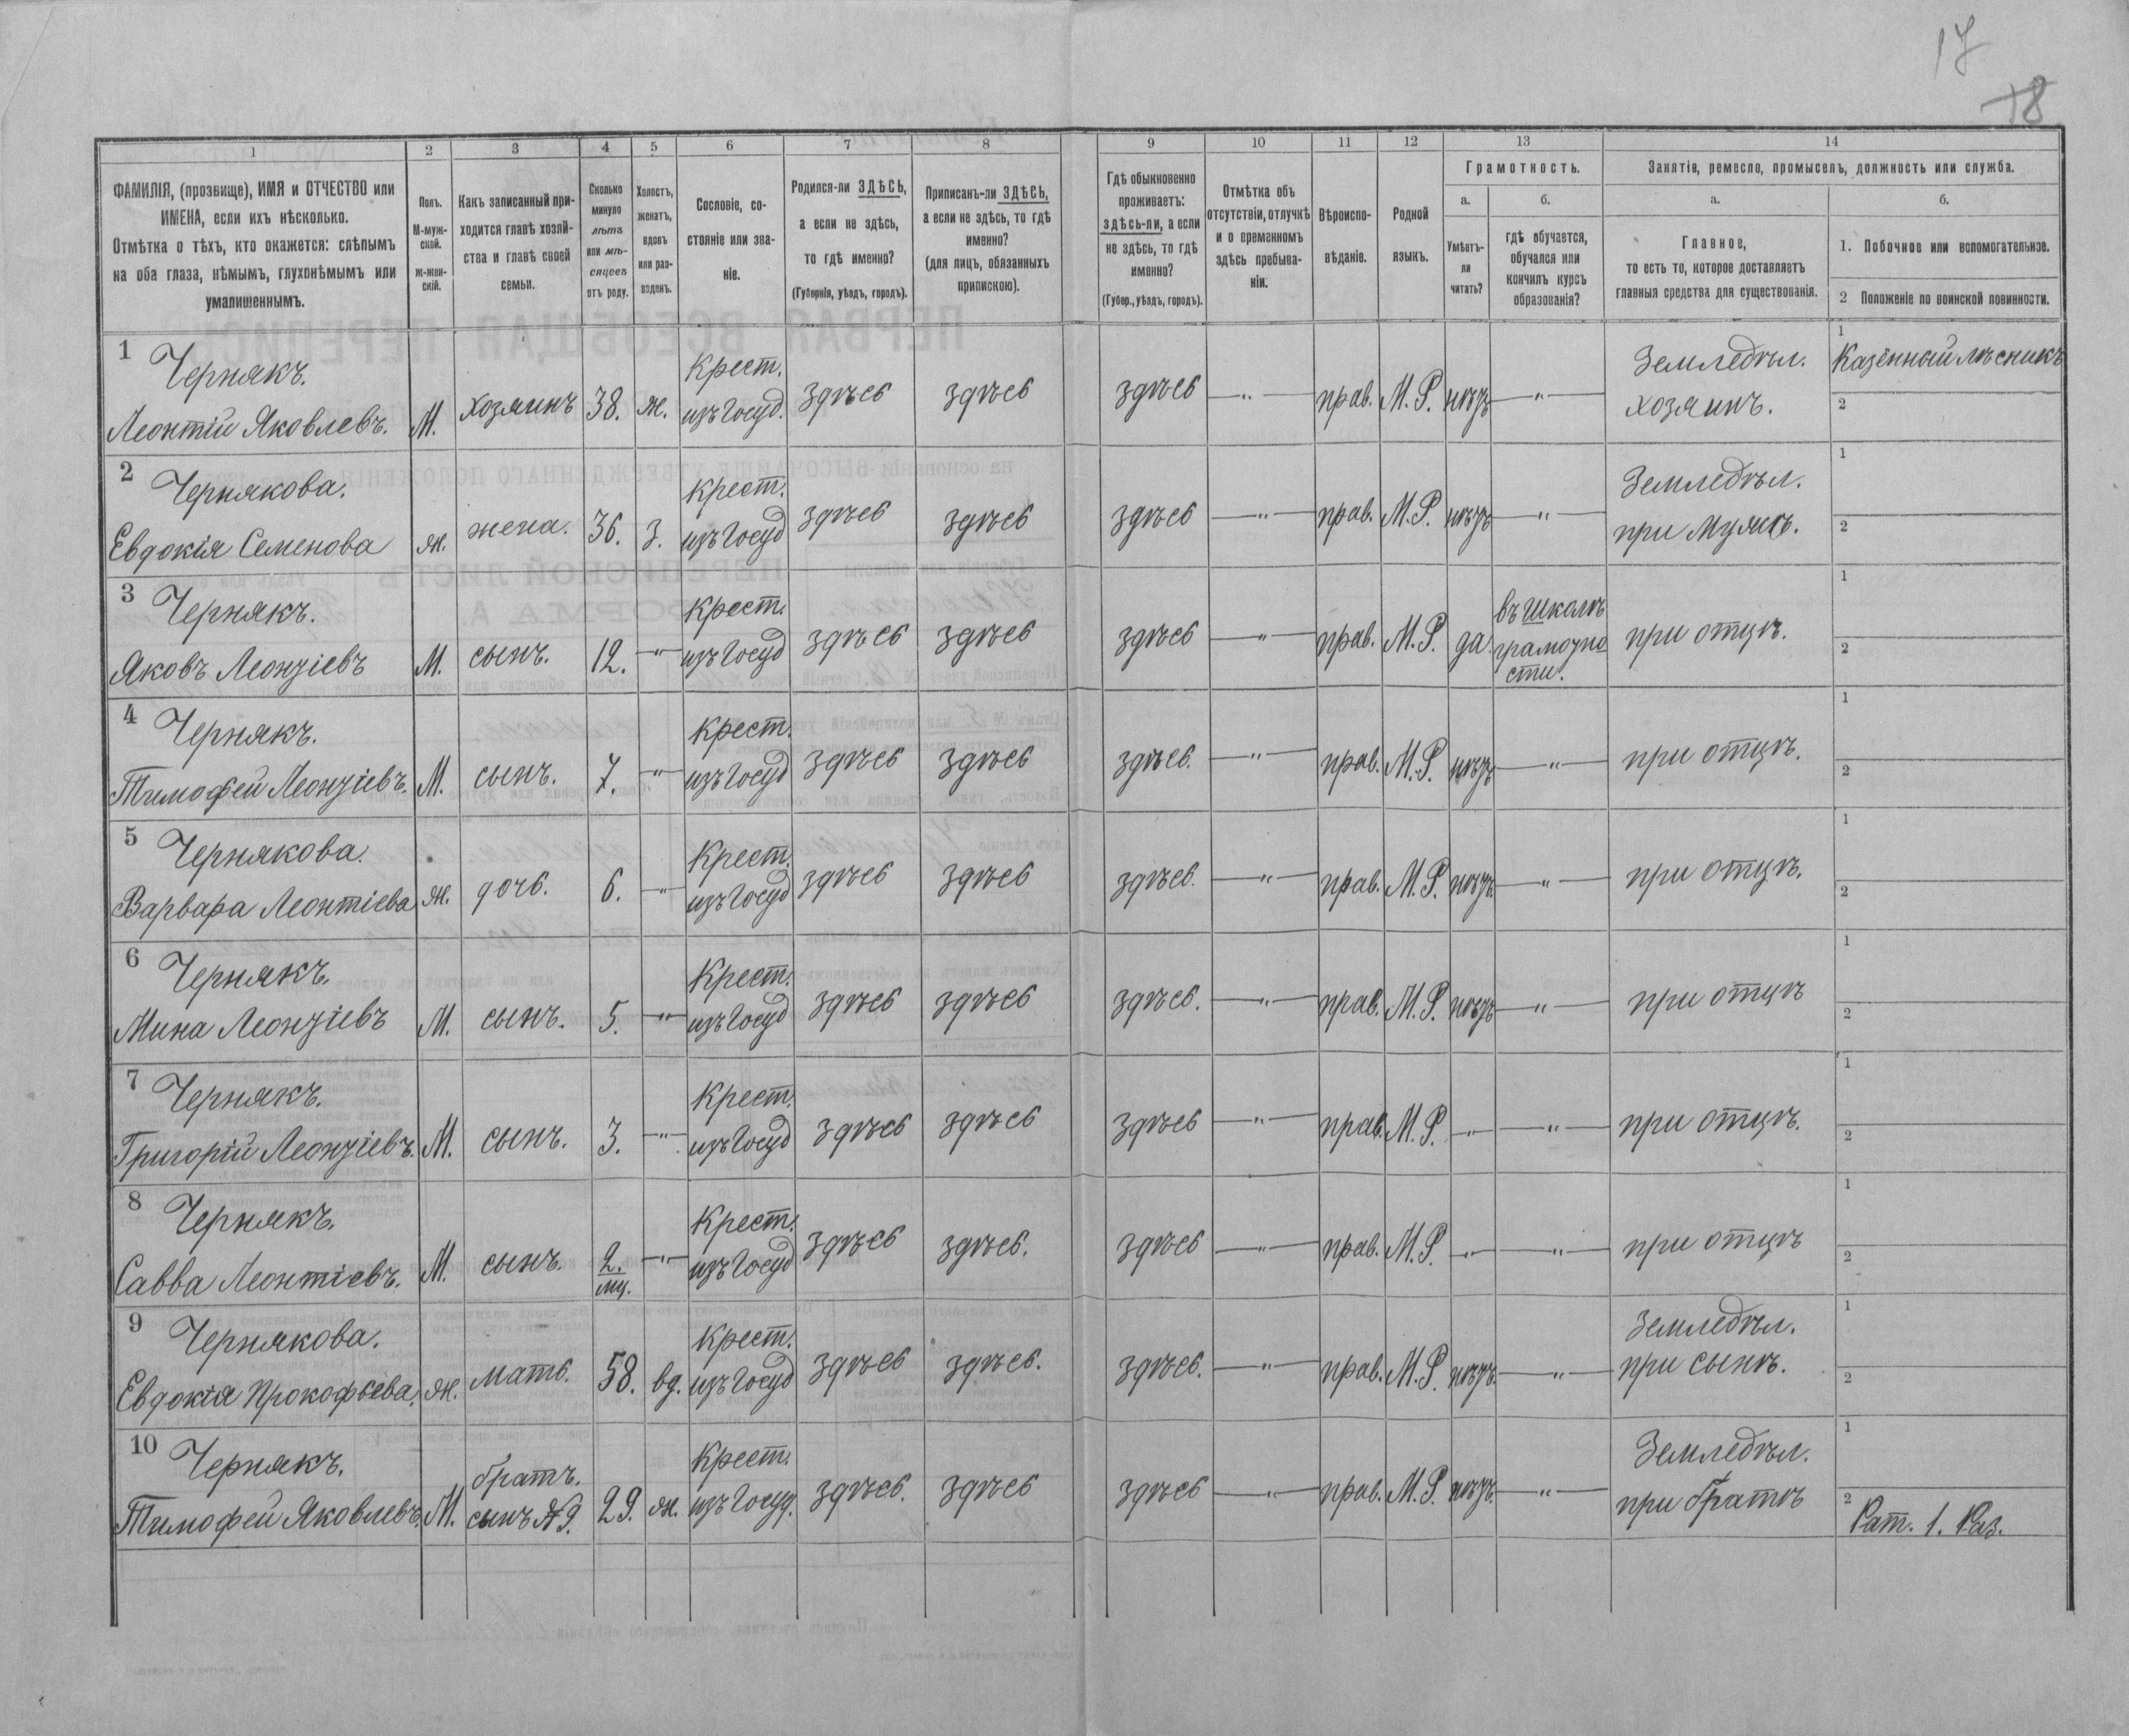 17
18
1
2
3
4
5
6
7
8
9
10
11
12
13
14
ФАМИЛІЯ, (прозвище), ИМЯ и ОТЧЕСТВО или
ИМЕНА, если ихъ нѣсколько.
Отмѣтка о тѣхъ, кто окажется: слѣпымъ
на оба глаза, нѣмымъ, глухонѣмымъ или
умалишеннымъ.
Полъ.
М-муж-
ской.
ж-жен-
скій.
Какъ записанный при-
ходится главѣ хозяй-
ства и главѣ своей
семьи.
Сколько
минуло
лѣтъ
или мѣ-
сяцевъ
отъ роду.
Холостъ,
женатъ,
вдовъ
или раз-
веденъ.
Сословіе, со-
стояніе или зва-
ніе.
Родился-ли ЗДѢСЬ,
а если не здѣсь,
то гдѣ именно?
(Губернія, уѣздъ, городъ).
Приписанъ-ли ЗДѢСЬ,
а если не здѣсь, то гдѣ
именно?
(для лицъ, обязанныхъ
припискою).
Гдѣ обыкновенно
проживаетъ:
здѣсь-ли, а если
не здѣсь, то гдѣ
именно?
(Губер., уѣздъ, городъ).
Отмѣтка объ
отсутствіи, отлучкѣ
и о временномъ
здѣсь пребыва-
ніи.
Вѣроиспо-
вѣданіе.
Родной
языкъ.
Грамотность.
а.
Умѣетъ-
ли
читать?
б.
гдѣ обучается,
обучался или
кончилъ курсъ
образованія?
Занятія, ремесло, промыселъ, должность или служба.
а.
Главное,
то есть то, которое доставляетъ
главныя средства для существованія.
б.
1. Побочное или вспомогательное.
2 Положеніе по воинской повинности.
1 Чернякъ. Крест. Земледѣл. 1 Казённый лѣсникъ
Леонтій Яковлевъ. М. хозяинъ 38. ж. изъ Госуд. здѣсь здѣсь здѣсь —"— прав. М. Р. нѣтъ —"— хозяинъ. 2
2 Чернякова. Крест. Земледѣл. 1
Евдокія Семенова ж. жена. 36. з. изъ Госуд здѣсь здѣсь здѣсь —"— прав. М. Р. нѣтъ —"— при мужѣ. 2
3 Чернякъ. Крест. въ школѣ 1
Яковъ Леонтіевъ М. сынъ. 12. —"— изъ Госуд здѣсь здѣсь здѣсь —"— прав. М. Р. да. грамотно при отцѣ. 2
сти.
4 Чернякъ. Крест. 1
Тимофей Леонтіевъ. М. сынъ. 7. —"— изъ Госуд здѣсь здѣсь здѣсь. —"— прав. М. Р. нѣтъ —"— при отцѣ. 2
5 Чернякова. Крест. 1
Варвара Леонтіева ж. дочь. 6. —"— изъ Госуд здѣсь здѣсь здѣсь. —"— прав. М. Р. нѣтъ. —"— при отцѣ. 2
6 Чернякъ. Крест. 1
Мина Леонтіевъ М. сынъ. 5. —"— изъ Госуд здѣсь здѣсь здѣсь. —"— прав. М. Р. нѣтъ —"— при отцѣ 2
7 Чернякъ. Крест. 1
Григорій Леонтіевъ. М. сынъ. 3. —"— изъ Госуд здѣсь здѣсь здѣсь —"— прав. М. Р. —"— —"— при отцѣ. 2
8 Чернякъ. Крест. 1
Савва Леонтіевъ. М. сынъ. 2. —"— изъ Госуд здѣсь здѣсь. здѣсь —"— прав. М. Р. —"— —"— при отцѣ 2
мц.
9 Чернякова. Крест. Земледѣл. 1
Евдокія Прокофьева. ж. мать. 58. вд. изъ Госуд здѣсь здѣсь. здѣсь. —"— прав. М. Р. нѣтъ. —"— при сынѣ. 2
10 Чернякъ. братъ. Крест. Земледѣл. 1
Тимофей Яковлевъ. М. сынъ №9. 29. ж. изъ Госуд. здѣсь. здѣсь здѣсь —"— прав. М. Р. нѣтъ. —"— при братѣ 2 Рат. 1. Раз.